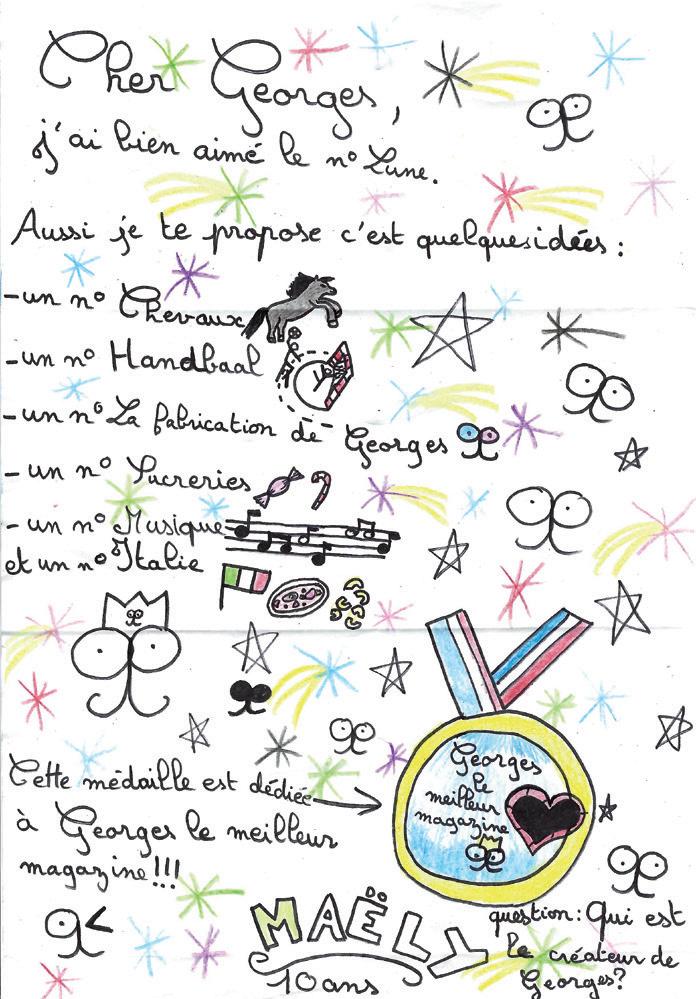 Cher Georges,
j'ai bien aimé le n° Lune.
Aussi je te propose c'est quelques idées :
-un n° Chevaux
-un n° Handbaal
-un n° La fabrication de Georges
-un n° Sucreries
-un n° Musique
et un n° Italie
Cette médaille est dédiée
à Georges le meilleur
magazine!!!
Georges
le
meilleur
magazine
MAËLY
10 ans
question: Qui est
le créateur de
Georges?